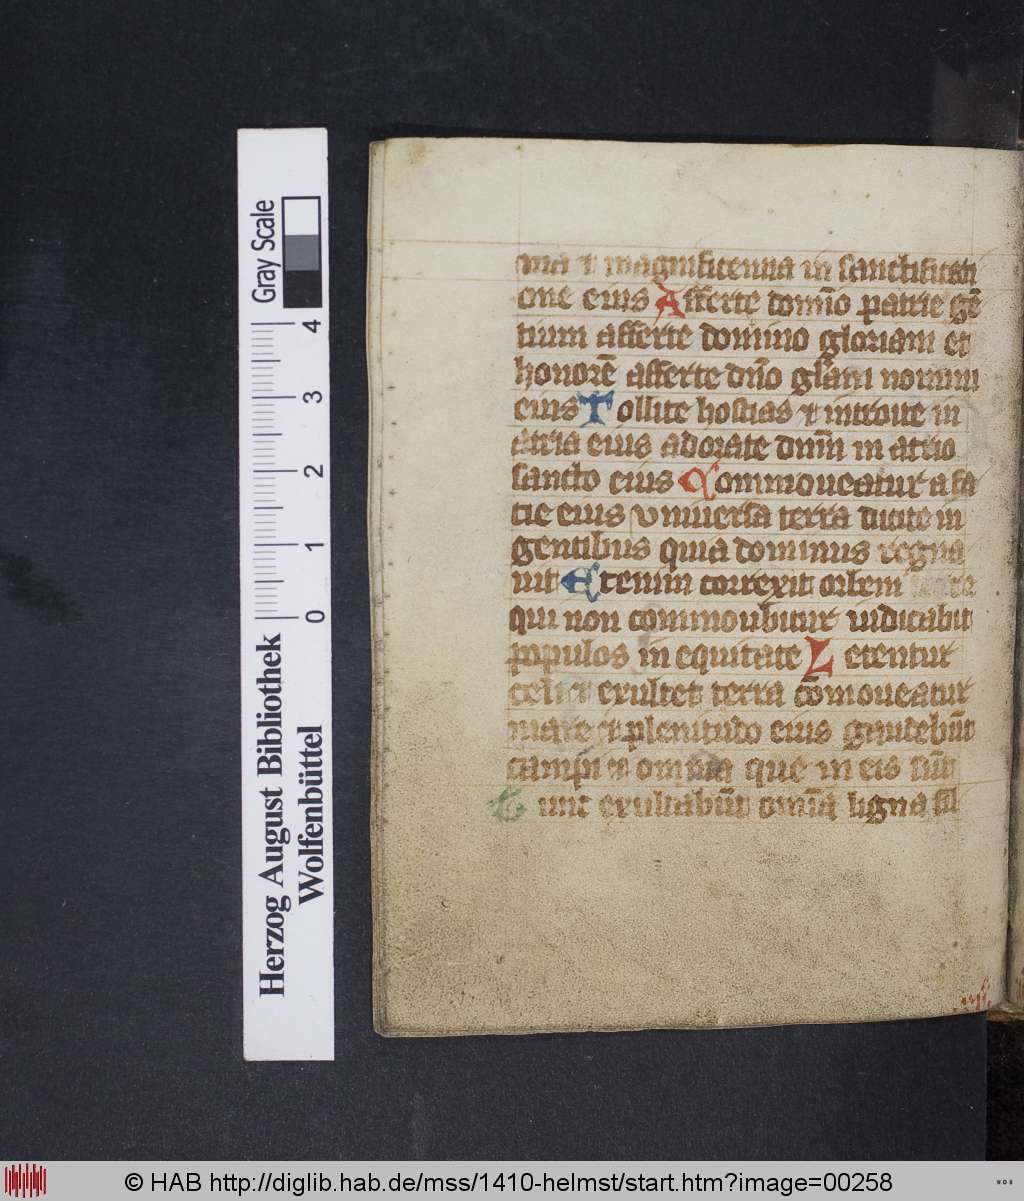 Gray Scale
4
3
2
1
0
Herzog August Bibliothek
Wolfenbüttel
nia ⁊ magnificentia in sanctificati
one eius Afferte domĩo patrie gẽ
tium afferte domino gloriam et
honorẽ afferte dño gl̃am nomini
eius Tollite hostias ⁊ introite in
atria eius adorate dñm in atrio
sancto eius Commoueatur a fa
cie eius vniuersa terra dicite in
gentibus quia dominus regna
uit Etenim correxit orbem terra
qui non commoubitur iudicabit
populos in equitate Letentur
celi ⁊ exultet terra comoueatur
mare et plenitudo eius gaudebũt
campi et omnia que in eis sũt
Tunc exultabũt omĩa ligna sil
© HAB http://diglib.hab.de/mss/1410-helmst/start.htm?image=00258